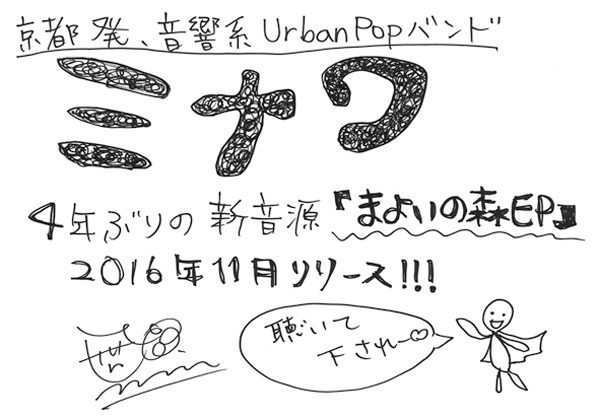 京都発、音響系UrbanPopバンド
ミナワ
4年ぶりの新音源『まよいの森EP』
2016年11月リリース!!!
聴いて
下されー♡